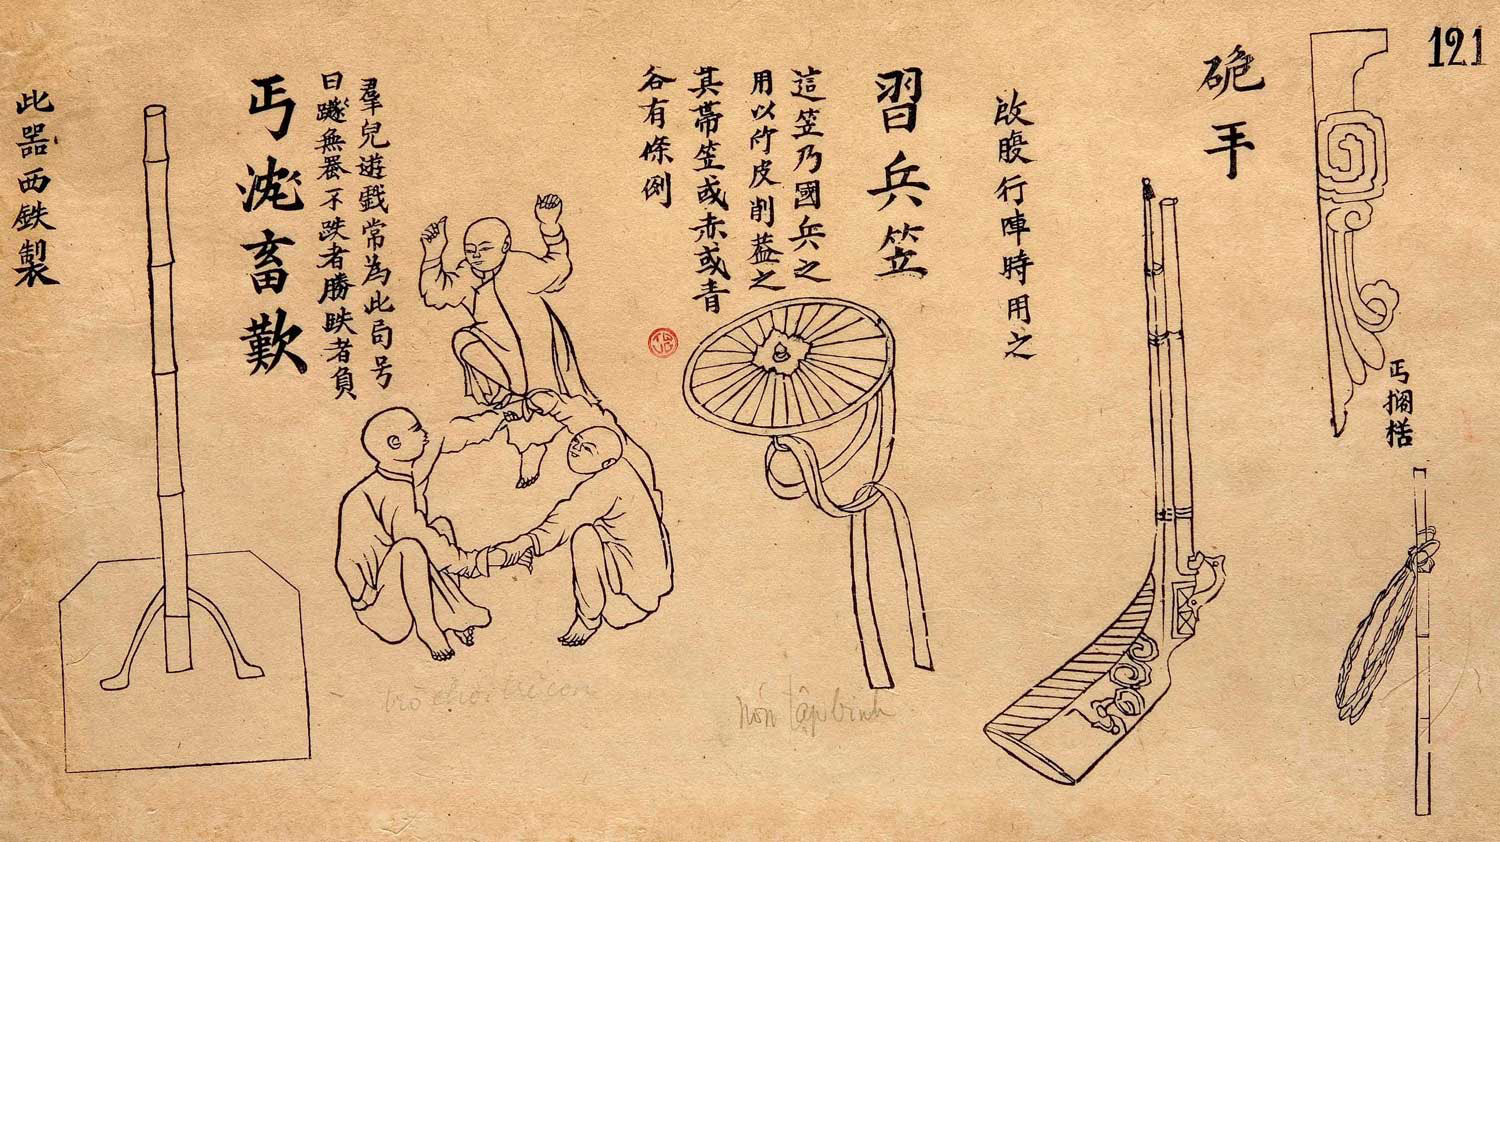 121
丐搁栝
砲手
啟腹行陣時用之
習兵笠
這笠乃國兵之
用以竹皮削葢之
其帶笠或赤或青
谷有條例
羣兒遊戲常為此局号
曰蹴無器不跌者勝跌者負
畜歎
此器西鉄製
nón tập binh
trò chơi trẻ con